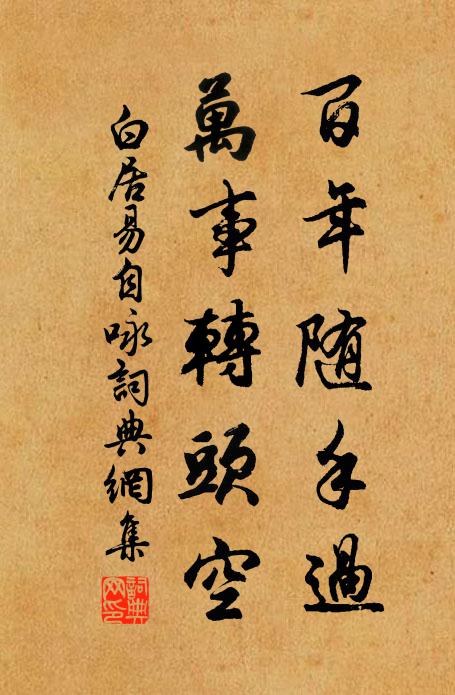 百年随手過
萬事轉頭空
白居易自咏詞典網集
詞典網印